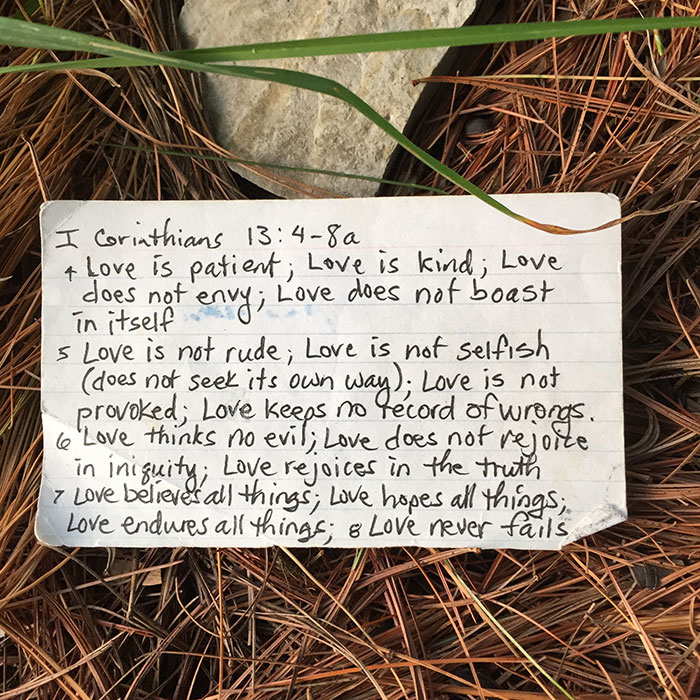 I Corinthians 13:4-8a
4 Love is patient; Love is kind; Love
does not envy; Love does not boast
in itself
5 Love is not rude; Love is not selfish
(does not seek its own way); Love is not
provoked; Love keeps no record of wrongs.
6 Love thinks no evil; Love does not rejoice
in iniquity; Love rejoices in the truth
7 Love believes all things; Love hopes all things;
Love endures all things; 8 Love never fails